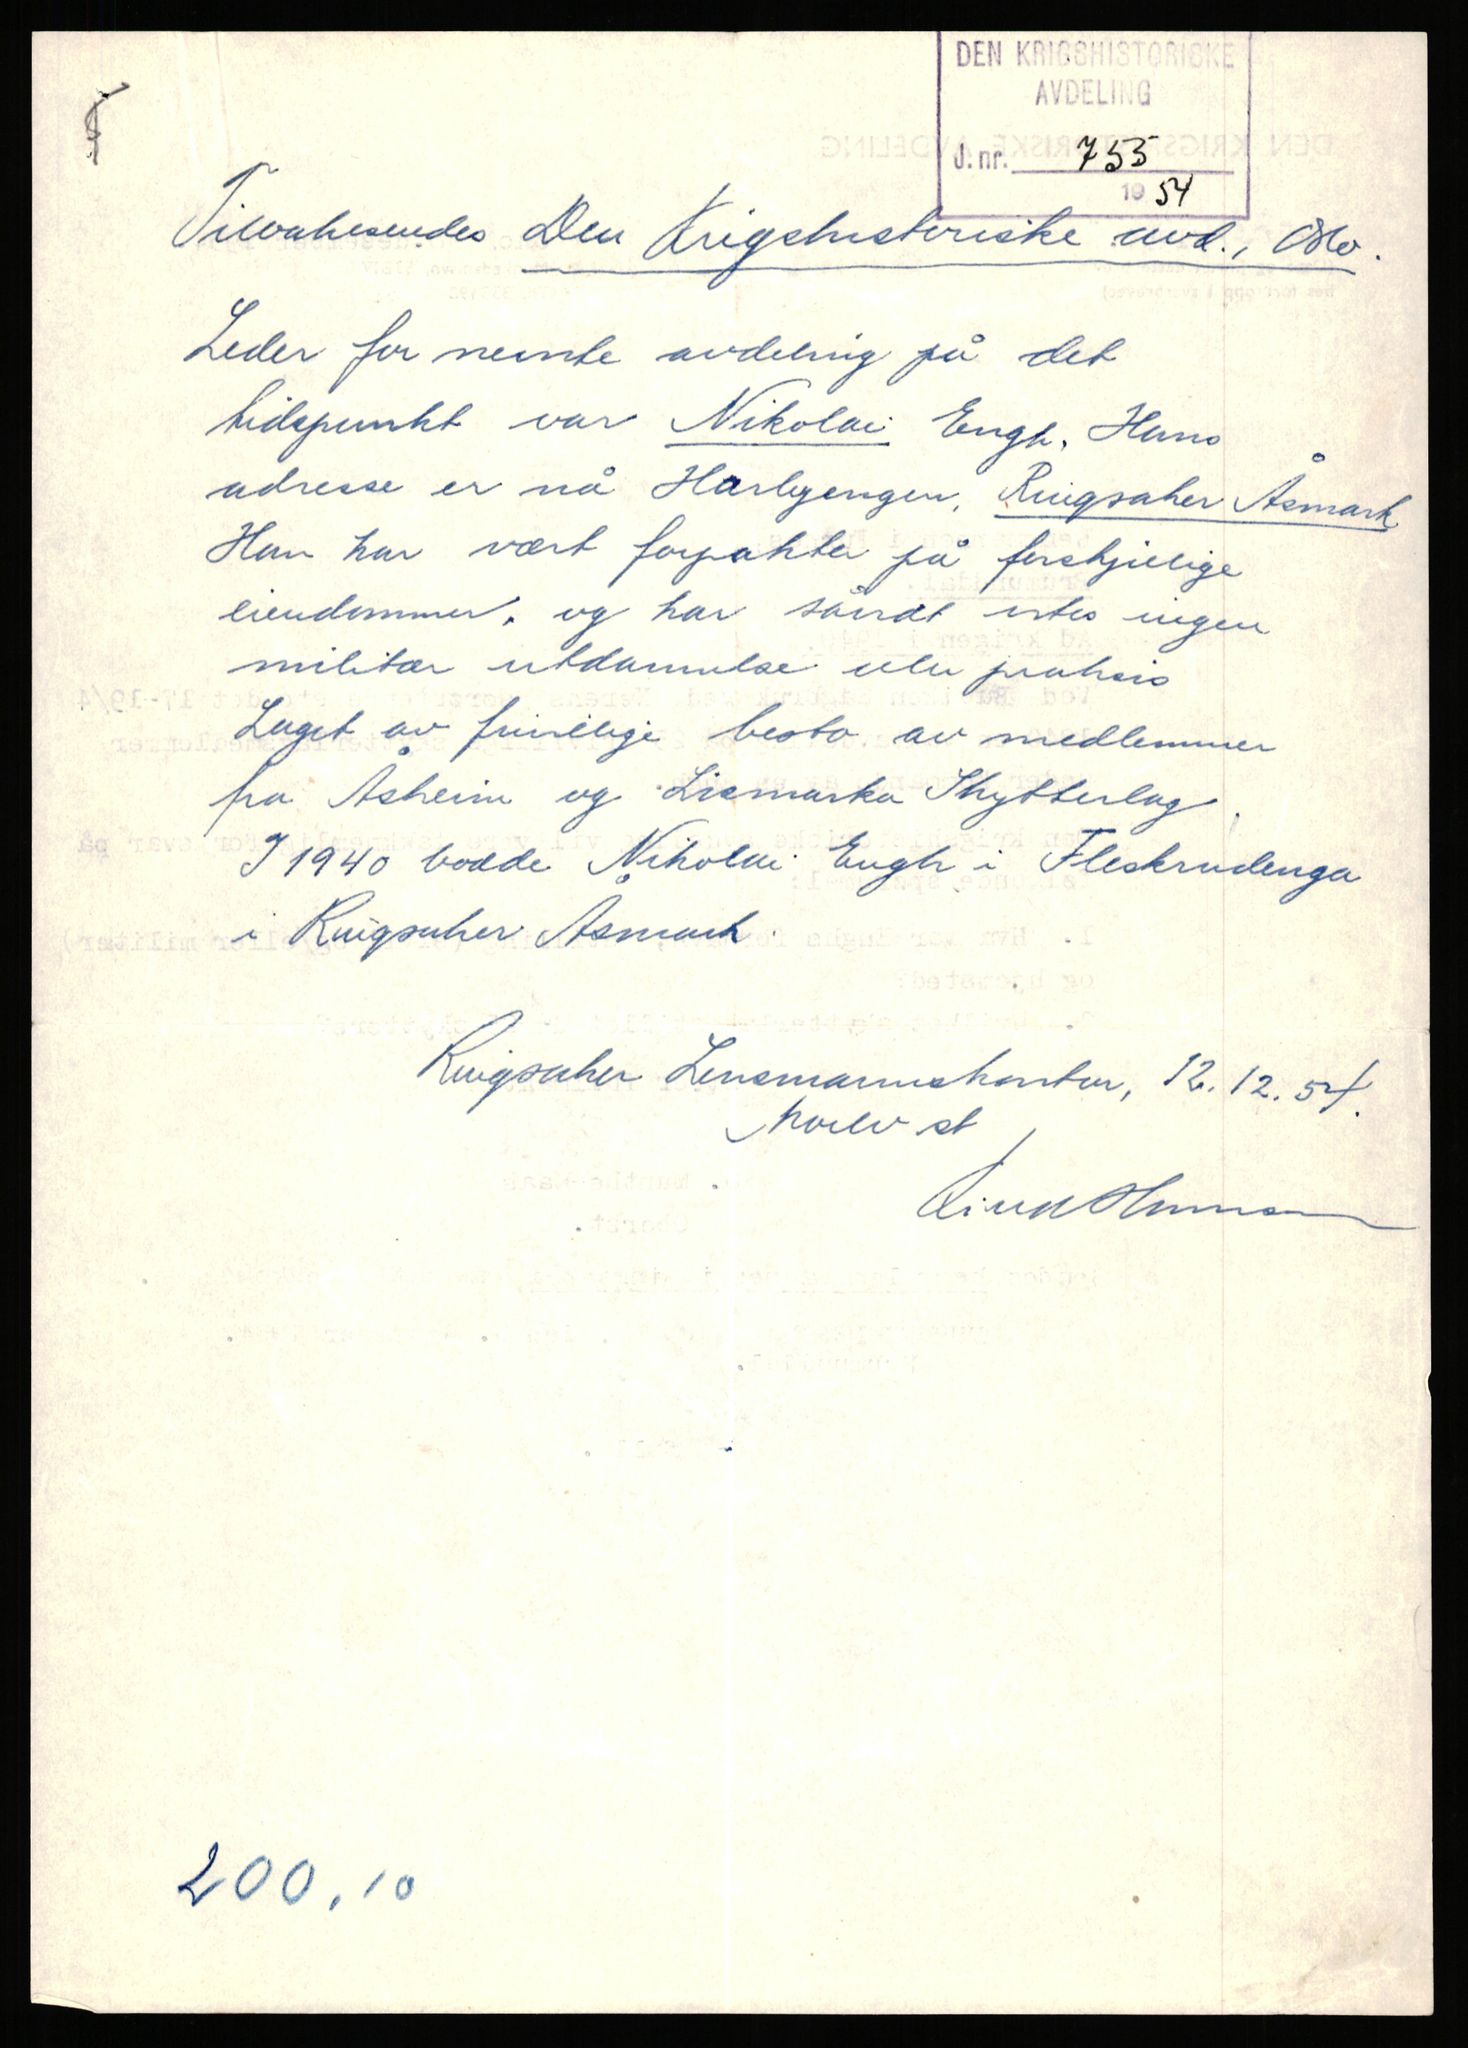 DEN KRIGSHISTORISKE
AVDELING
J.nr. 755
1954
Tilbakesendes Den Krigshistoriske avd., Oslo.
Leder for nevnte avdeling på det
tidspunkt var Nikolai Engh. Hans
adresse er nå Harbyengen, Ringsaker Åsmark.
Han har vært forpakter på forskjellige
eiendommer, og har såvidt vites ingen
militær utdannelse eller praksis
Laget av frivillige besto av medlemmer
fra Åsheim og Lismarka Skytterlag.
I 1940 bodde Nikolai Engh i Fleskrudenga
i Ringsaker Åsmark.
Ringsaker Lensmannskontor, 12.12.54.
Moelv st
200.10